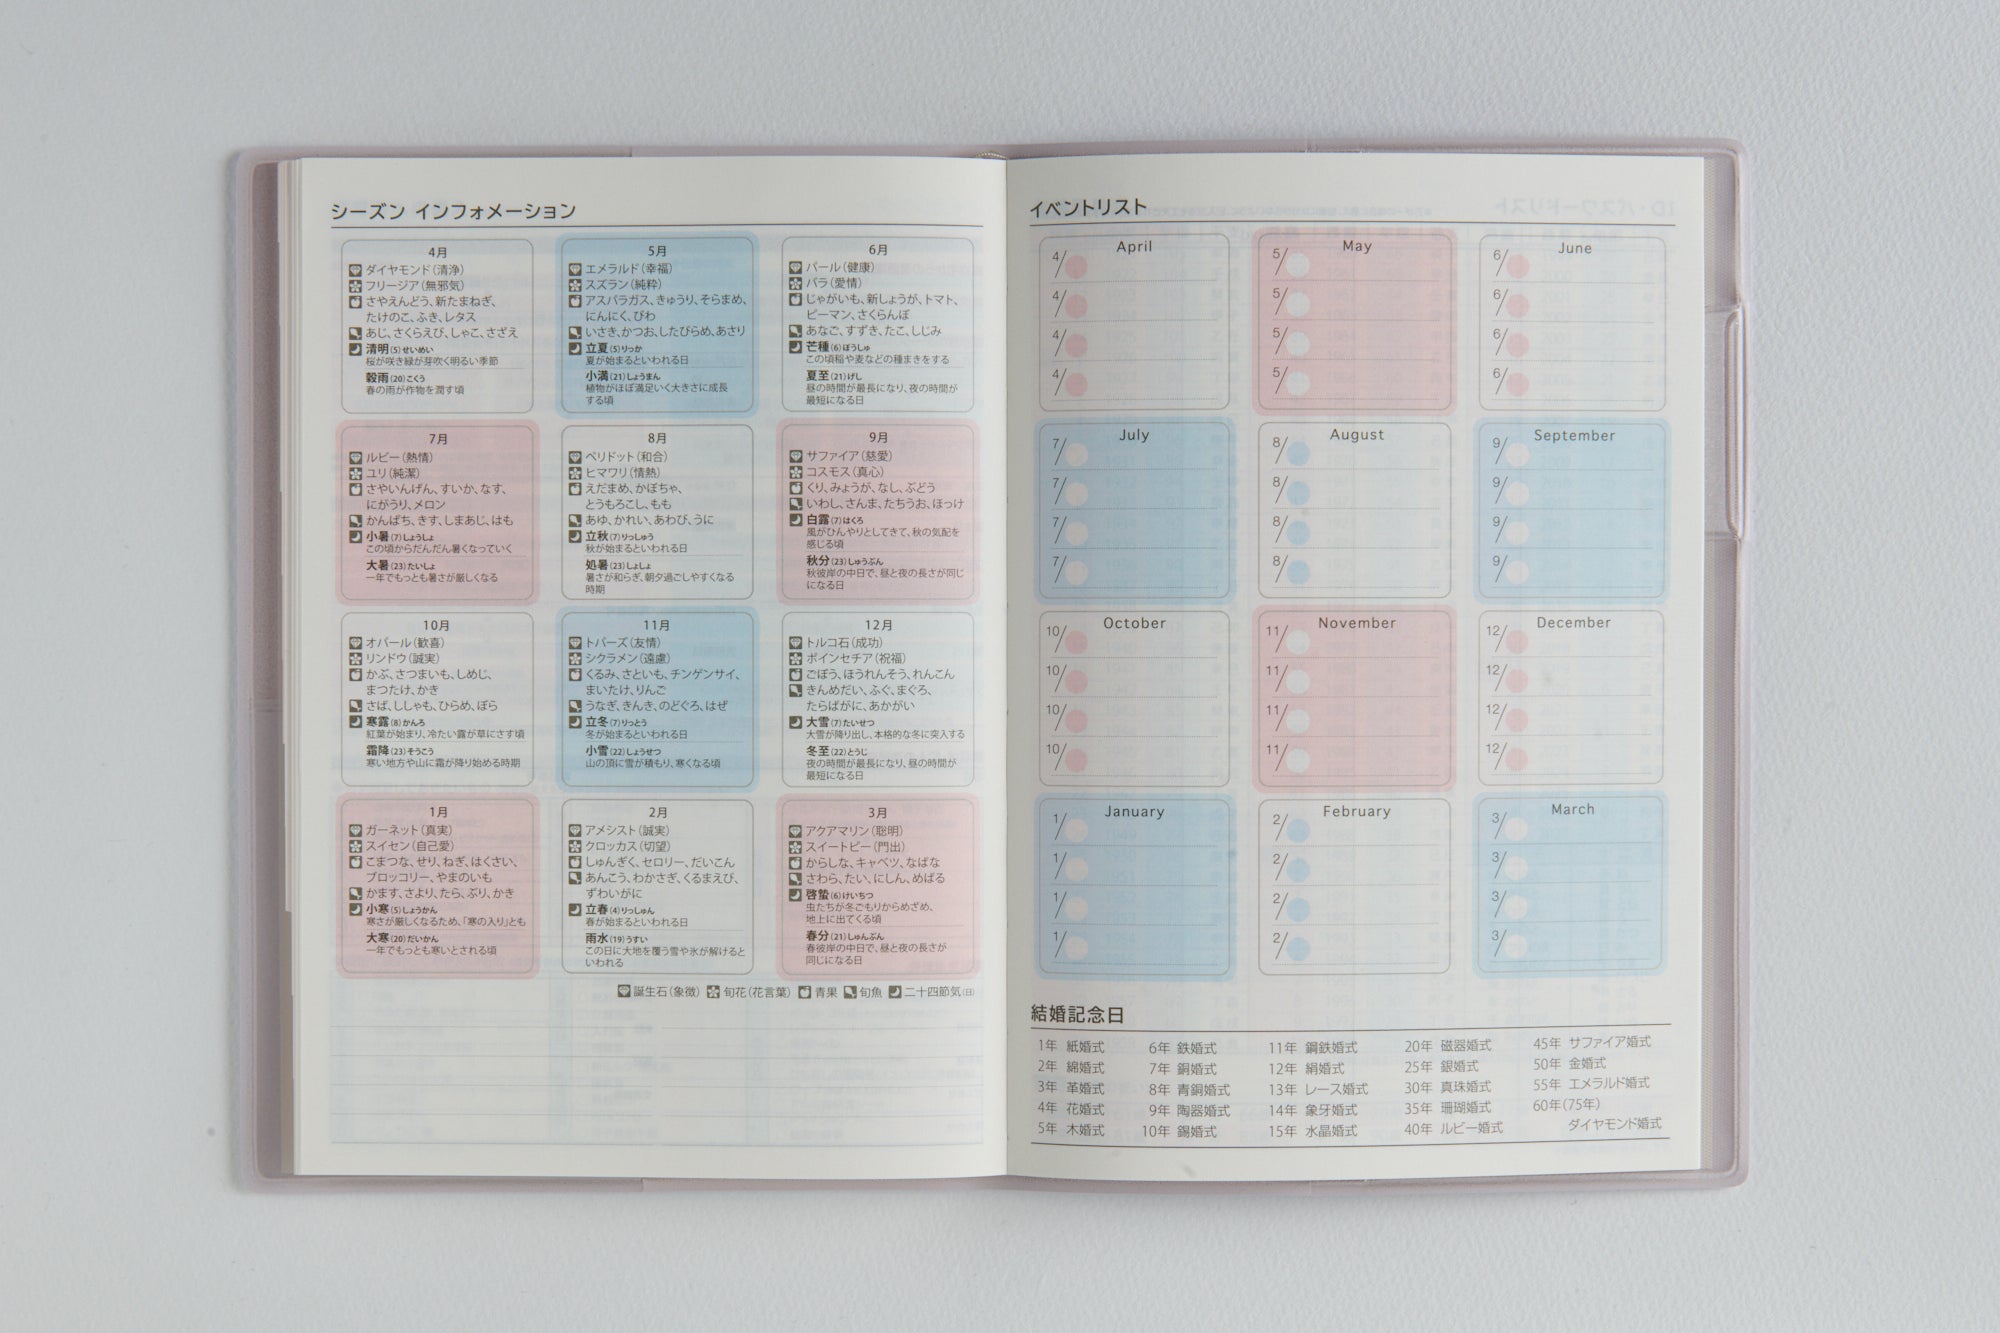 シーズン インフォメーション
4月
ダイヤモンド(清浄)
フリージア(無邪気)
さやえんどう、新たまねぎ、
たけのこ、ふき、レタス
あじ、さくらえび、しゃこ、さざえ
清明(5)せいめい
桜が咲き緑が芽吹く明るい季節
穀雨(20)こくう
春の雨が作物を潤す頃
5月
エメラルド(幸福)
スズラン(純粋)
アスパラガス、きゅうり、そらまめ、
にんにく、びわ
いさき、かつお、したびらめ、あさり
立夏(5)りっか
夏が始まるといわれる日
小満(21)しょうまん
植物がほぼ満足いく大きさに成長
する頃
6月
パール(健康)
バラ(愛情)
じゃがいも、新しょうが、トマト、
ピーマン、さくらんぼ
あなご、すずき、たこ、しじみ
芒種(6)ぼうしゅ
この頃稲や麦などの種まきをする
夏至(21)げし
昼の時間が最長になり、夜の時間が
最短になる日
7月
ルビー(熱情)
ユリ(純潔)
さやいんげん、すいか、なす、
にがうり、メロン
かんぱち、きす、しまあじ、はも
小暑(7)しょうしょ
この頃からだんだん暑くなっていく
大暑(23)たいしょ
一年でもっとも暑さが厳しくなる
8月
ペリドット(和合)
ヒマワリ(情熱)
えだまめ、かぼちゃ、
とうもろこし、もも
あゆ、かれい、あわび、うに
立秋(7)りっしゅう
秋が始まるといわれる日
処暑(23)しょしょ
暑さが和らぎ、朝夕過ごしやすくなる
時期
9月
サファイア(慈愛)
コスモス(真心)
くり、みょうが、なし、ぶどう
いわし、さんま、たちうお、ほっけ
白露(7)はくろ
風がひんやりとしてきて、秋の気配を
感じる頃
秋分(23)しゅうぶん
秋彼岸の中日で、昼と夜の長さが同じ
になる日
10月
オパール(歓喜)
リンドウ(誠実)
かぶ、さつまいも、しめじ、
まつたけ、かき
さば、ししゃも、ひらめ、ぼら
寒露(8)かんろ
紅葉が始まり、冷たい露が草にさす頃
霜降(23)そうこう
寒い地方や山に霜が降り始める時期
11月
トパーズ(友情)
シクラメン(遠慮)
くるみ、さといも、チンゲンサイ、
まいたけ、りんご
うなぎ、きんき、のどぐろ、はぜ
立冬(7)りっとう
冬が始まるといわれる日
小雪(22)しょうせつ
山の頂に雪が積もり、寒くなる頃
12月
トルコ石(成功)
ポインセチア(祝福)
ごぼう、ほうれんそう、れんこん
きんめだい、ふぐ、まぐろ、
たらばがに、あかがい
大雪(7)たいせつ
大雪が降り出し、本格的な冬に突入する
冬至(22)とうじ
夜の時間が最長になり、昼の時間が
最短になる日
1月
ガーネット(真実)
スイセン(自己愛)
こまつな、せり、ねぎ、はくさい、
ブロッコリー、やまのいも
かます、さより、たら、ぶり、かき
小寒(5)しょうかん
寒さが厳しくなるため、「寒の入り」とも
大寒(20)だいかん
一年でもっとも寒いとされる頃
2月
アメシスト(誠実)
クロッカス(切望)
しゅんぎく、セロリー、だいこん
あんこう、わかさぎ、くるまえび、
ずわいがに
立春(4)りっしゅん
春が始まるといわれる日
雨水(19)うすい
この日に大地を覆う雪や氷が解けると
いわれる
3月
アクアマリン(聡明)
スイートピー(門出)
からしな、キャベツ、なばな
さわら、たい、にしん、めばる
啓蟄(6)けいちつ
虫たちが冬ごもりからめざめ、
地上に出てくる頃
春分(21)しゅんぶん
春彼岸の中日で、昼と夜の長さが
同じになる日
誕生石(象徴) 旬花(花言葉) 青果 旬魚 二十四節気(日)
イベントリスト
April
4/
4/
4/
4/
May
5/
5/
5/
5/
June
6/
6/
6/
6/
July
7/
7/
7/
7/
August
8/
8/
8/
8/
September
9/
9/
9/
9/
October
10/
10/
10/
10/
November
11/
11/
11/
11/
December
12/
12/
12/
12/
January
1/
1/
1/
1/
February
2/
2/
2/
2/
March
3/
3/
3/
3/
結婚記念日
1年 紙婚式 6年 鉄婚式 11年 鋼鉄婚式 20年 磁器婚式 45年 サファイア婚式
2年 綿婚式 7年 銅婚式 12年 絹婚式 25年 銀婚式 50年 金婚式
3年 革婚式 8年 青銅婚式 13年 レース婚式 30年 真珠婚式 55年 エメラルド婚式
4年 花婚式 9年 陶器婚式 14年 象牙婚式 35年 珊瑚婚式 60年(75年)
5年 木婚式 10年 錫婚式 15年 水晶婚式 40年 ルビー婚式 ダイヤモンド婚式